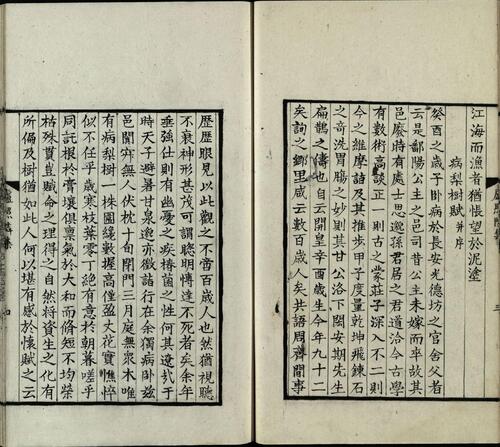 江海而漁者猶悵望於泥塗
病梨樹賦 并序
癸酉之歲予臥病於長安光德坊之官舍父老
云是鄱陽公主之邑司昔公主未嫁而卒故其
邑廢時有處士思邈孫君居之君道洽今古學
有數術高談正一則古之蒙莊子深入不二則
今之維摩詰及其推步甲子度量乾坤飛鍊石
之奇洗胃腸之妙則其甘公洛下閎安期先生
扁鵲之儔也自云開皇辛酉歲生今年九十二
矣詢之鄉里咸云數百歲人矣共語周齊間事
歷歷眼見以此觀之不啻百歲人也然猶視聽
不衰神形甚茂可謂聰明博達不死者矣余年
垂強仕則有幽憂之疾椿菌之性何其遼哉于
時天子避暑甘泉邈亦徵詣行在余獨病臥茲
邑闃寂無人伏枕十旬閉門三月庭無衆木唯
有病梨樹一株圍纔數握高僅盈丈花實憔悴
似不任乎歲寒枝葉零丁絕有意於朝暮嗟乎
同託根於膏壤俱稟氣於大和而脩短不均榮
枯殊貫豈賦命之理得之自然將資生之化有
所偏及樹猶如此人何以堪有感於懷賦之云